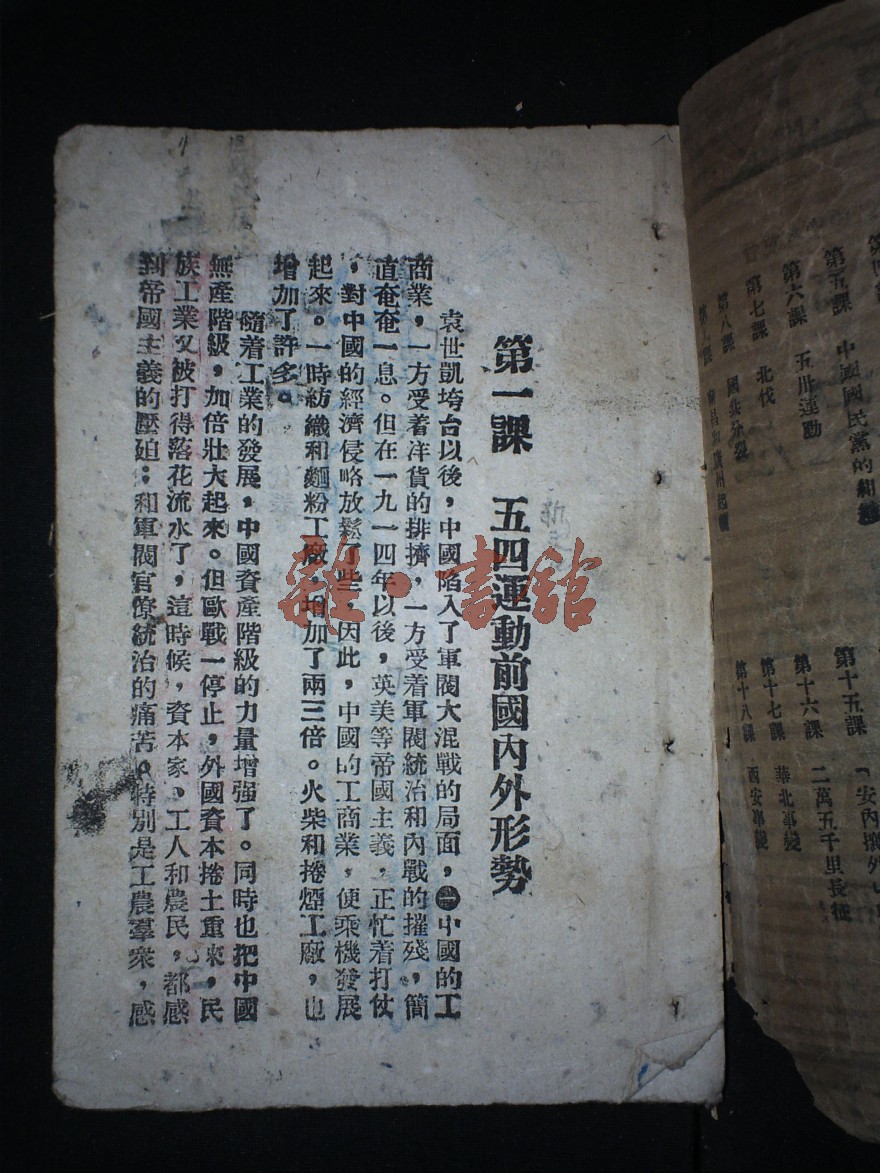 第一課　五四運動前國內外形勢
袁世凱垮台以後，中國陷入了軍閥大混戰的局面，㊀中國的工
商業，一方受着洋貨的排擠，一方受着軍閥統治和內戰的摧殘，簡
直奄奄一息。但在一九一四年以後，英美等帝國主義，正忙着打仗
，對中國的經濟侵略放鬆了些，因此，中國的工商業，便乘機發展
起來。一時紡織和麵粉工廠，增加了兩三倍。火柴和捲煙工廠，也
增加了許多。
隨着工業的發展，中國資產階級的力量增强了。同時也把中國
無產階級，加倍壯大起來。但歐戰一停止，外國資本捲土重來，民
族工業又被打得落花流水了，這時候，資本家、工人和農民，都感
到帝國主義的壓迫；和軍閥官僚統治的痛苦。特別是工農羣衆，感
雜·書館
第五課　中國國民黨的
第六課　五卅運動
第七課　北伐
第八課　國共分裂
第十五課　「安內攘外」
第十六課　二萬五千里長征
第十七課　華北事變
第十八課　西安事變